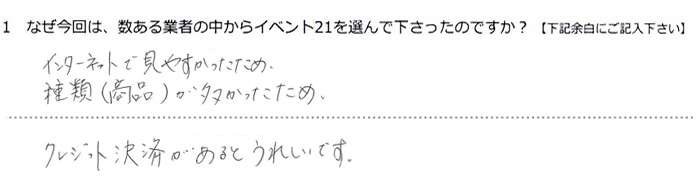 1 なぜ今回は、数ある業者の中からイベント21を選んで下さったのですか？【下記余白にご記入下さい】
インターネットで見やすかったため.
種類(商品)が多かったため.
クレジット決済があるとうれしいです.